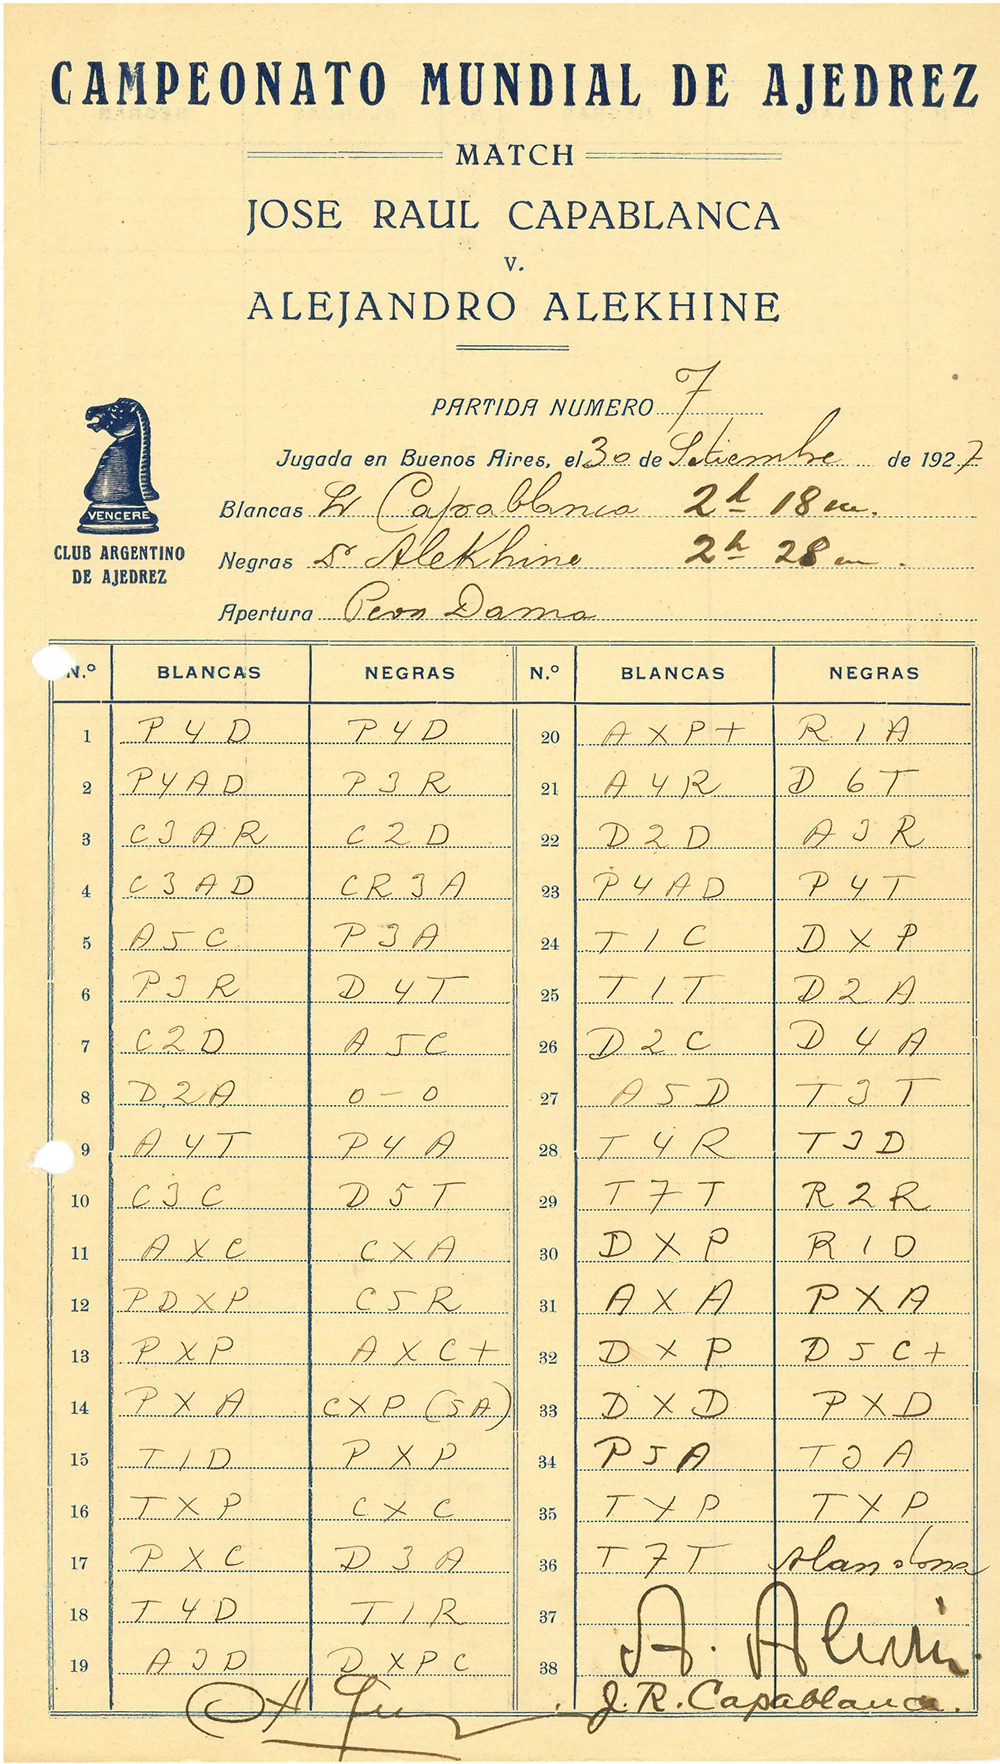 CAMPEONATO MUNDIAL DE AJEDREZ
MATCH
JOSE RAUL CAPABLANCA
v.
ALEJANDRO ALEKHINE
PARTIDA NUMERO 7
Jugada en Buenos Aires, el 30 de Setiembre de 1927
Blancas Sr Capablanca 2h 18 m.
Negras Sr Alekhine 2h 28 m.
Apertura Peon Dama
VENCERE
CLUB ARGENTINO
DE AJEDREZ
N.º BLANCAS NEGRAS N.º BLANCAS NEGRAS
1 P4D P4D 20 AXP+ R1A
2 P4AD P3R 21 A4R D6T
3 C3AR C2D 22 D2D A3R
4 C3AD CR3A 23 P4AD P4T
5 A5C P3A 24 T1C DXP
6 P3R D4T 25 T1T D2A
7 C2D A5C 26 D2C D4A
8 D2A 0-0 27 A5D T3T
9 A4T P4A 28 T4R T3D
10 C3C D5T 29 T7T R2R
11 AXC CXA 30 DXP R1D
12 PDXP C5R 31 AXA PXA
13 PXP AXC+ 32 DXP D5C+
14 PXA CXP (5A) 33 DXD PXD
15 T1D PXP 34 P5A T3A
16 TXP CXC 35 TXP TXP
17 PXC D3A 36 T7T Abandona
18 T4D T1R 37
19 A3D DXPC 38
J. R. Capablanca.